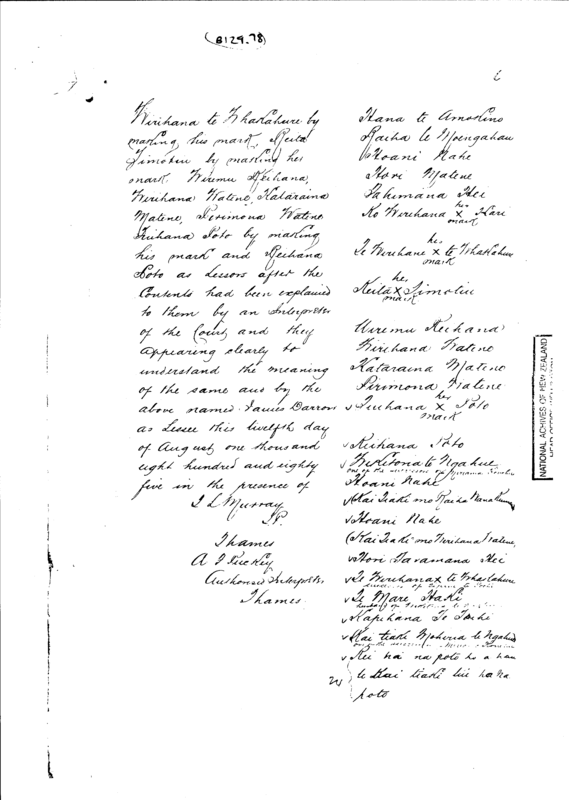 (B129.78)
Wirihana te Whakahure by
making his mark, Keita
Timotiu by making his
mark, Wiremu Keihana,
Wirihana Watene, Kataraina
Matene, Pirimona Watene
Tiuhana Poto by making
his mark and Reihana
Poto as Lessors after the
Contents had been explained
to them by an Interpreter
of the Court and they
appearing clearly to
understand the meaning
of the same and by the
above named James Darrow
as Lessee this twelfth day
of August one thousand
eight hundred and eighty
five in the presence of
Murray
J.P.
Thames
Authorised Interpreter
Thames
Hana te Amohino
te Moengahau
Hoani Nahe
Hori Matene
Tahimana Hei
his
Ko Wirihana x
mark
his
Te Wirihana x te Whakahure
mark
his
Keita x Timotiu
mark
Wiremu Keihana
Wirihana Watene
Kataraina Matene
Pirimona Watene
his
Tiuhana x Poto
mark
Reihana Poto
te Ngahue
Hoani Nahe
Kai Tiaki mo
Hoani Nahe
(Kai Tiaki mo Wirihana Watene
Hori Taramana Hei
Te Wirihana x te Whakahure
Te Mare
Hapihana Te
Kai tiaki
te Kai tiaki
poto
NATIONAL ARCHIVES OF NEW ZEALAND